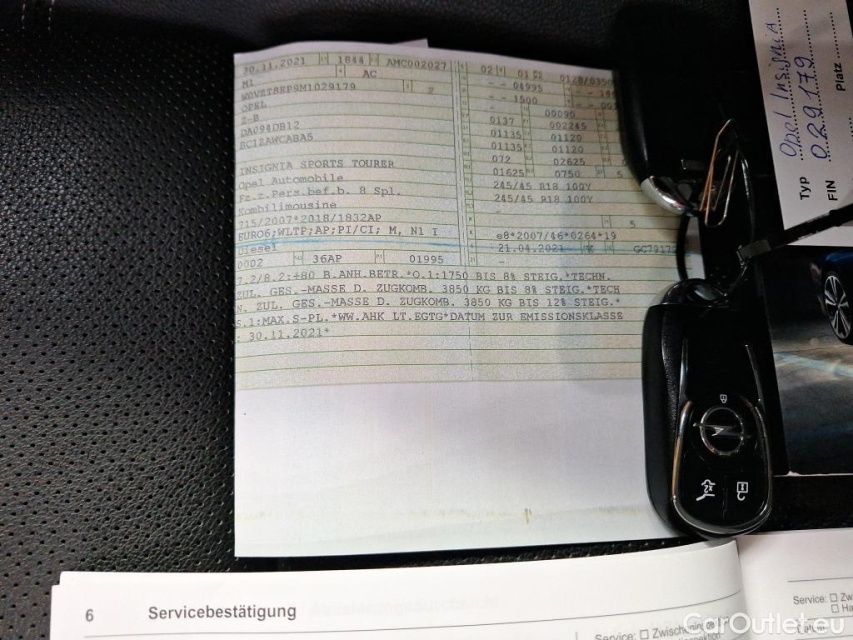 30.11.2021 1844 AMC002027 02 01
M1 AC - - 04995
W0VZT8EP9M1029179 - - 1500
OPEL 00090
Z-B 0137 002245
DA084DB12 01135 01120
BC1ZAWCABA5 01135 01120
072 02625
INSIGNIA SPORTS TOURER 01625 0750 5
Opel Automobile 245/45 R18 100Y
Fz.z.Pers.bef.b. 8 Spl. 245/45 R18 100Y
Kombilimousine -
715/2007*2018/1832AP 5
EURO6;WLTP;AP;PI/CI; M, N1 I e8*2007/46*0264*19
Diesel 21.04.2021 K
0002 36AP 01995
7.2/8.2:+80 B.ANH.BETR.*O.1:1750 BIS 8% STEIG.*TECHN.
ZUL. GES.-MASSE D. ZUGKOMB. 3850 KG BIS 8% STEIG.*TECH
N. ZUL. GES.-MASSE D. ZUGKOMB. 3850 KG BIS 12% STEIG.*
S.1:MAX.S-PL.*WW.AHK LT.EGTG*DATUM ZUR EMISSIONSKLASSE
: 30.11.2021*
Typ Opel Insignia
FIN 029179
Platz
6 Servicebestätigung
Service:
Service: Zwischen
CarOutlet.eu